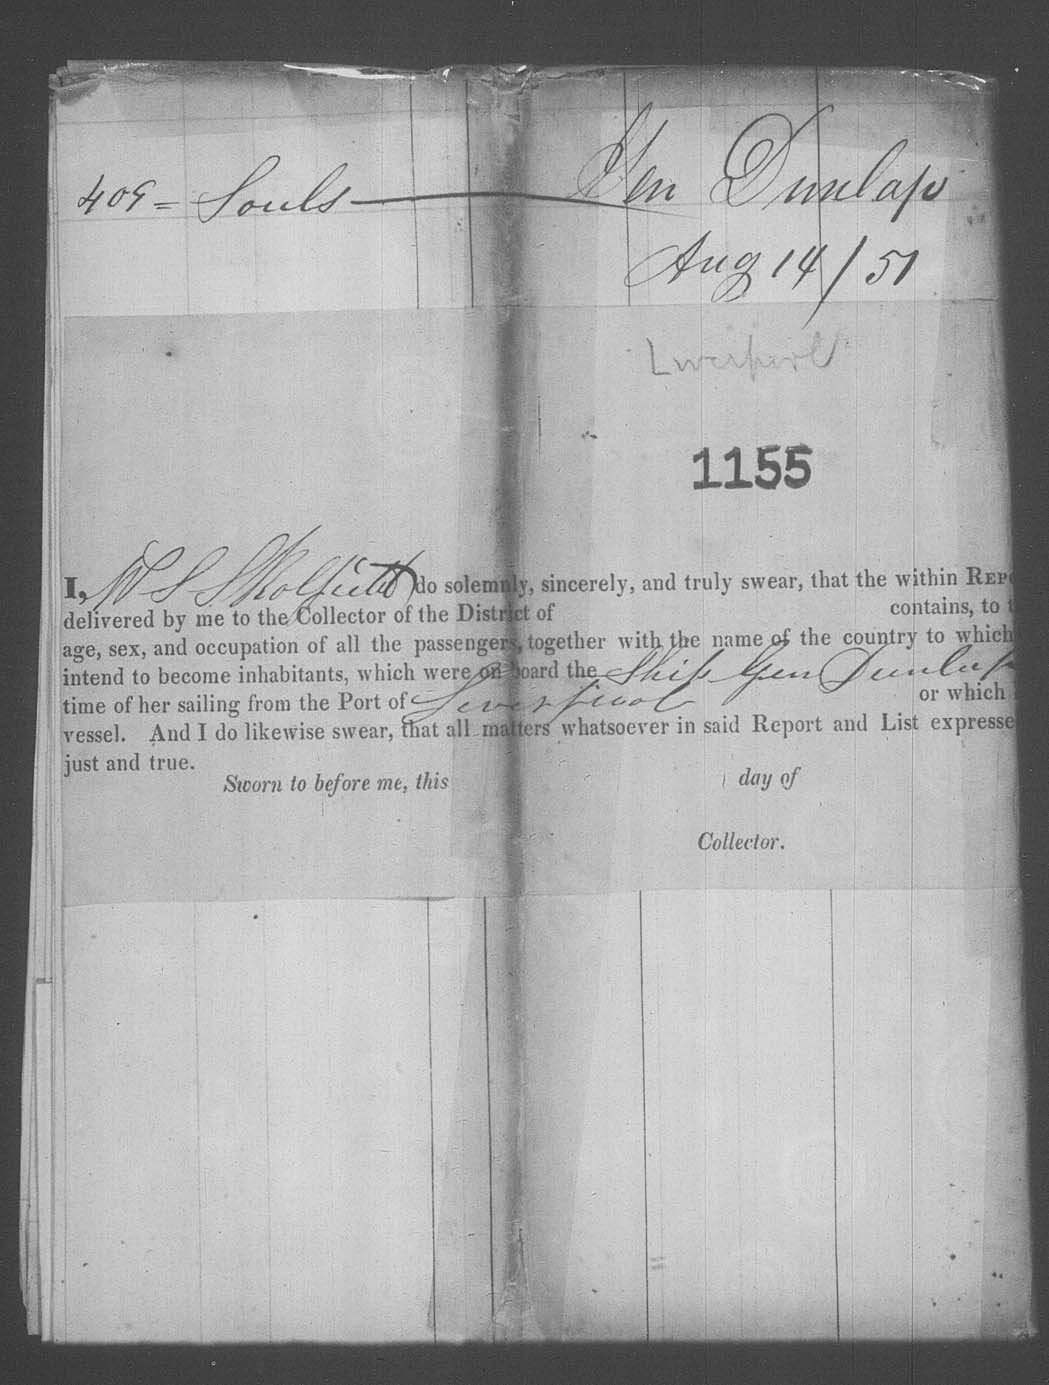 409 = Souls — Gen Dunlap
Aug 14/51
Liverpool
1155
I, W S Skolfield do solemnly, sincerely, and truly swear, that the within REPO
delivered by me to the Collector of the District of contains, to t
age, sex, and occupation of all the passengers, together with the name of the country to which
intend to become inhabitants, which were on board the Ship Gen Dunlap
time of her sailing from the Port of Liverpool or which
vessel. And I do likewise swear, that all matters whatsoever in said Report and List expresse
just and true.
Sworn to before me, this day of
Collector.